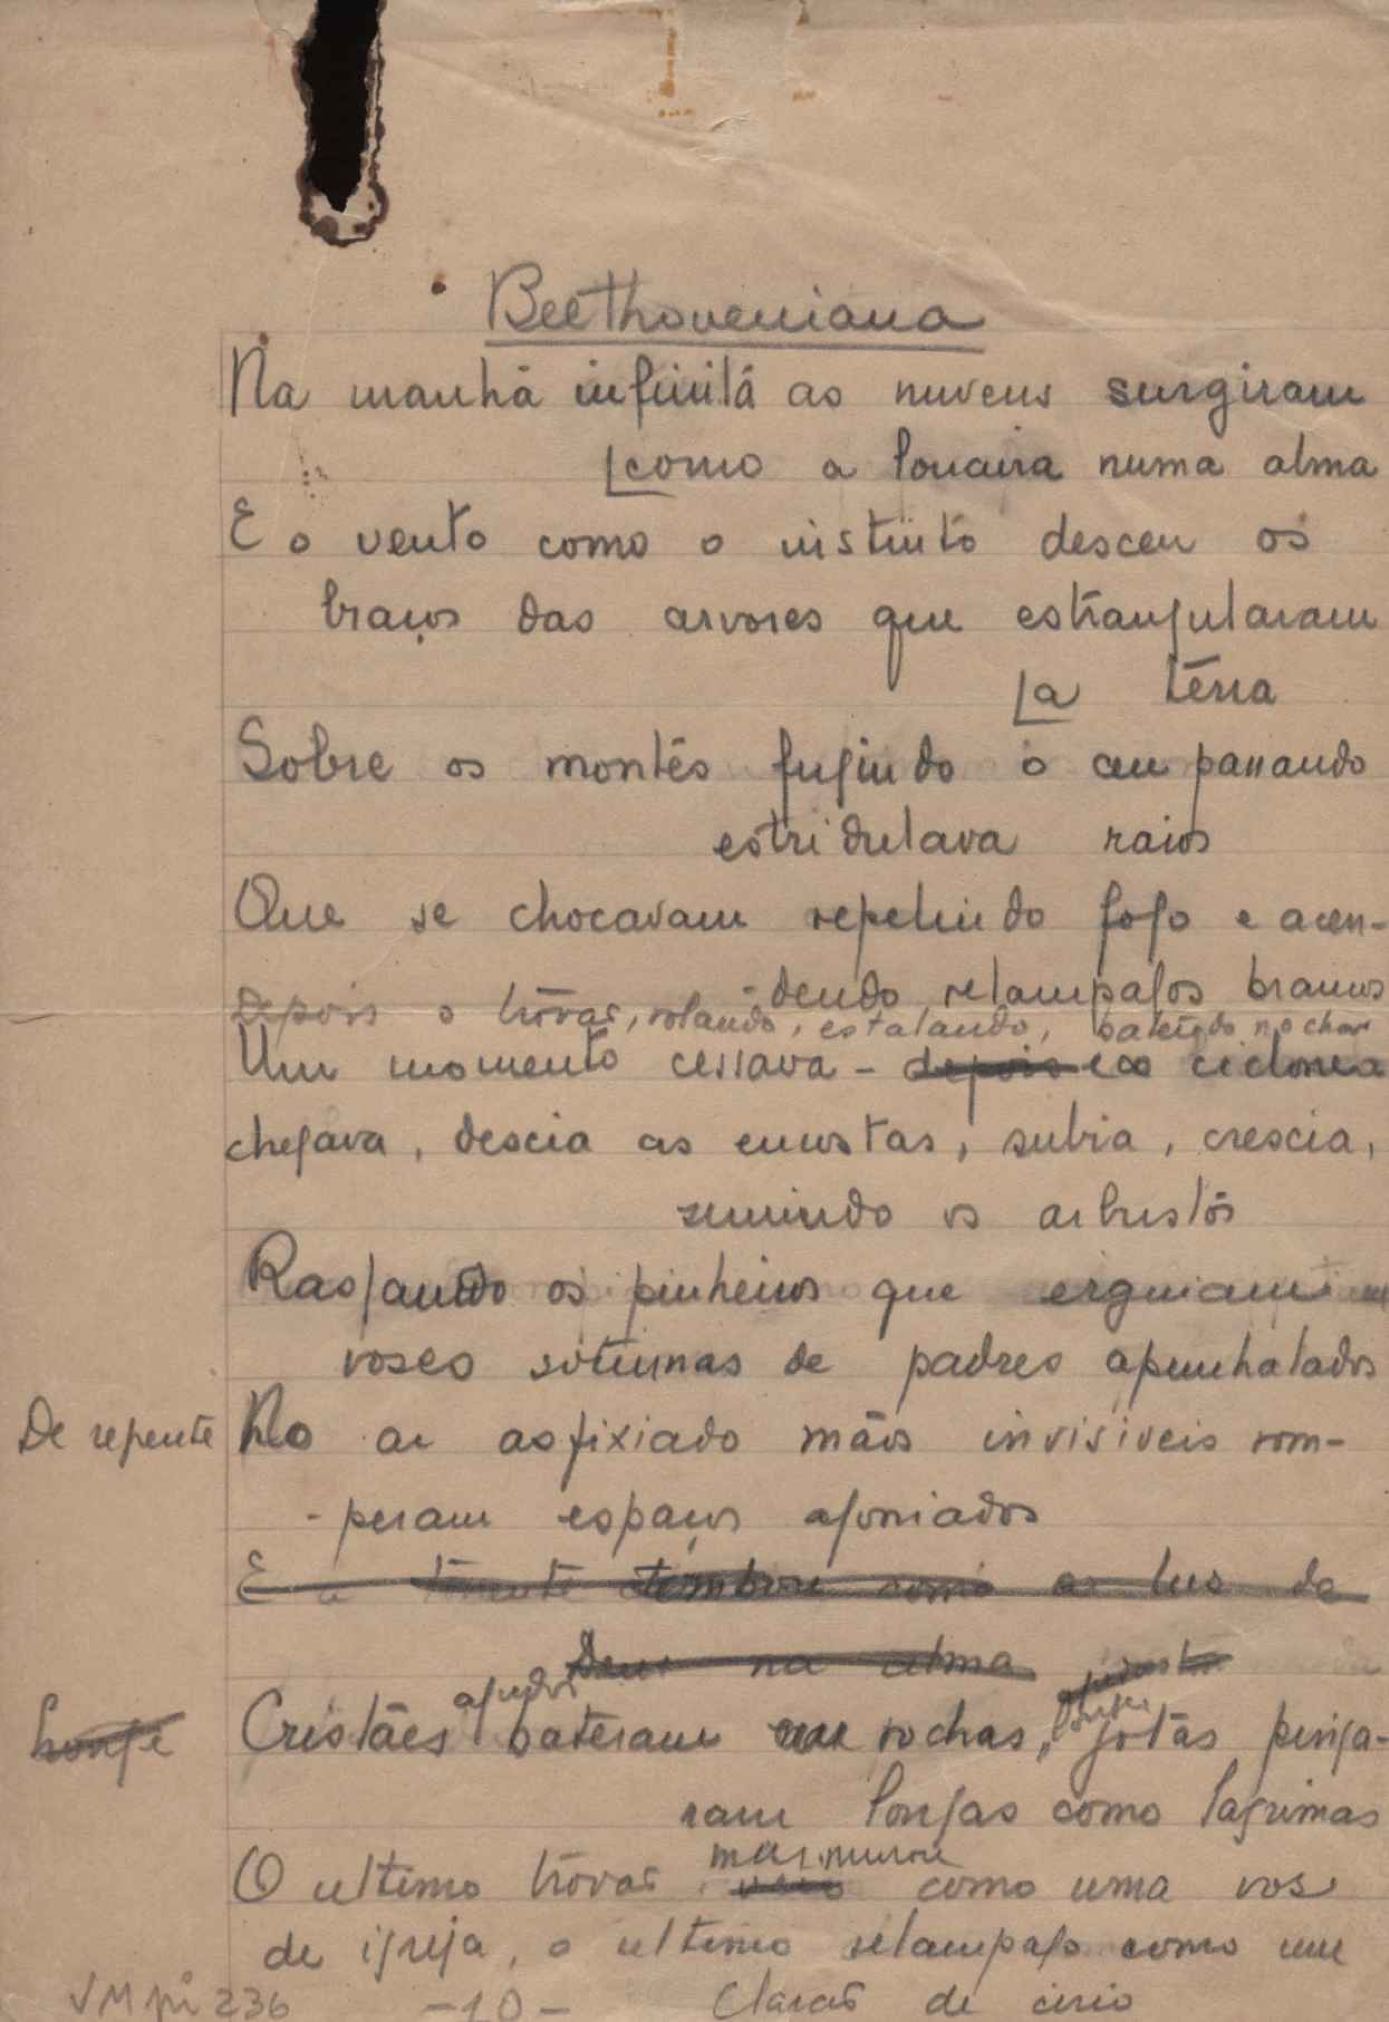 Beethoveniana
Na manhã infinita as nuvens surgiram
como a loucura numa alma
E o vento como o instinto desceu os
braços das arvores que estrangularam
a terra
Sobre os montes fugindo o ceu passando
estridulava raios
Que se chocavam repelindo fogo e acen-
-dendo relampagos brancos
Depois o trovão, rolando, estalando, batendo no chão
Um momento cessava - depois e o ciclone
chegava, descia as encostas, subia, crescia,
sumindo os arbustos
Rasgando os pinheiros que erguiam
voses soturnas de padres apunhalados
De repente No ar asfixiado mãos invisiveis rom-
-peram espaços agoniados
E a como a luz de
Deus na alma
agudos
longe Cristães bateram nas rochas, gotas pinga-
ram longas como lagrimas
murmurou
O ultimo trovão como uma vos
de igreja, o ultimo relampago como um
clarão de cirio
VM pi 236 -10-